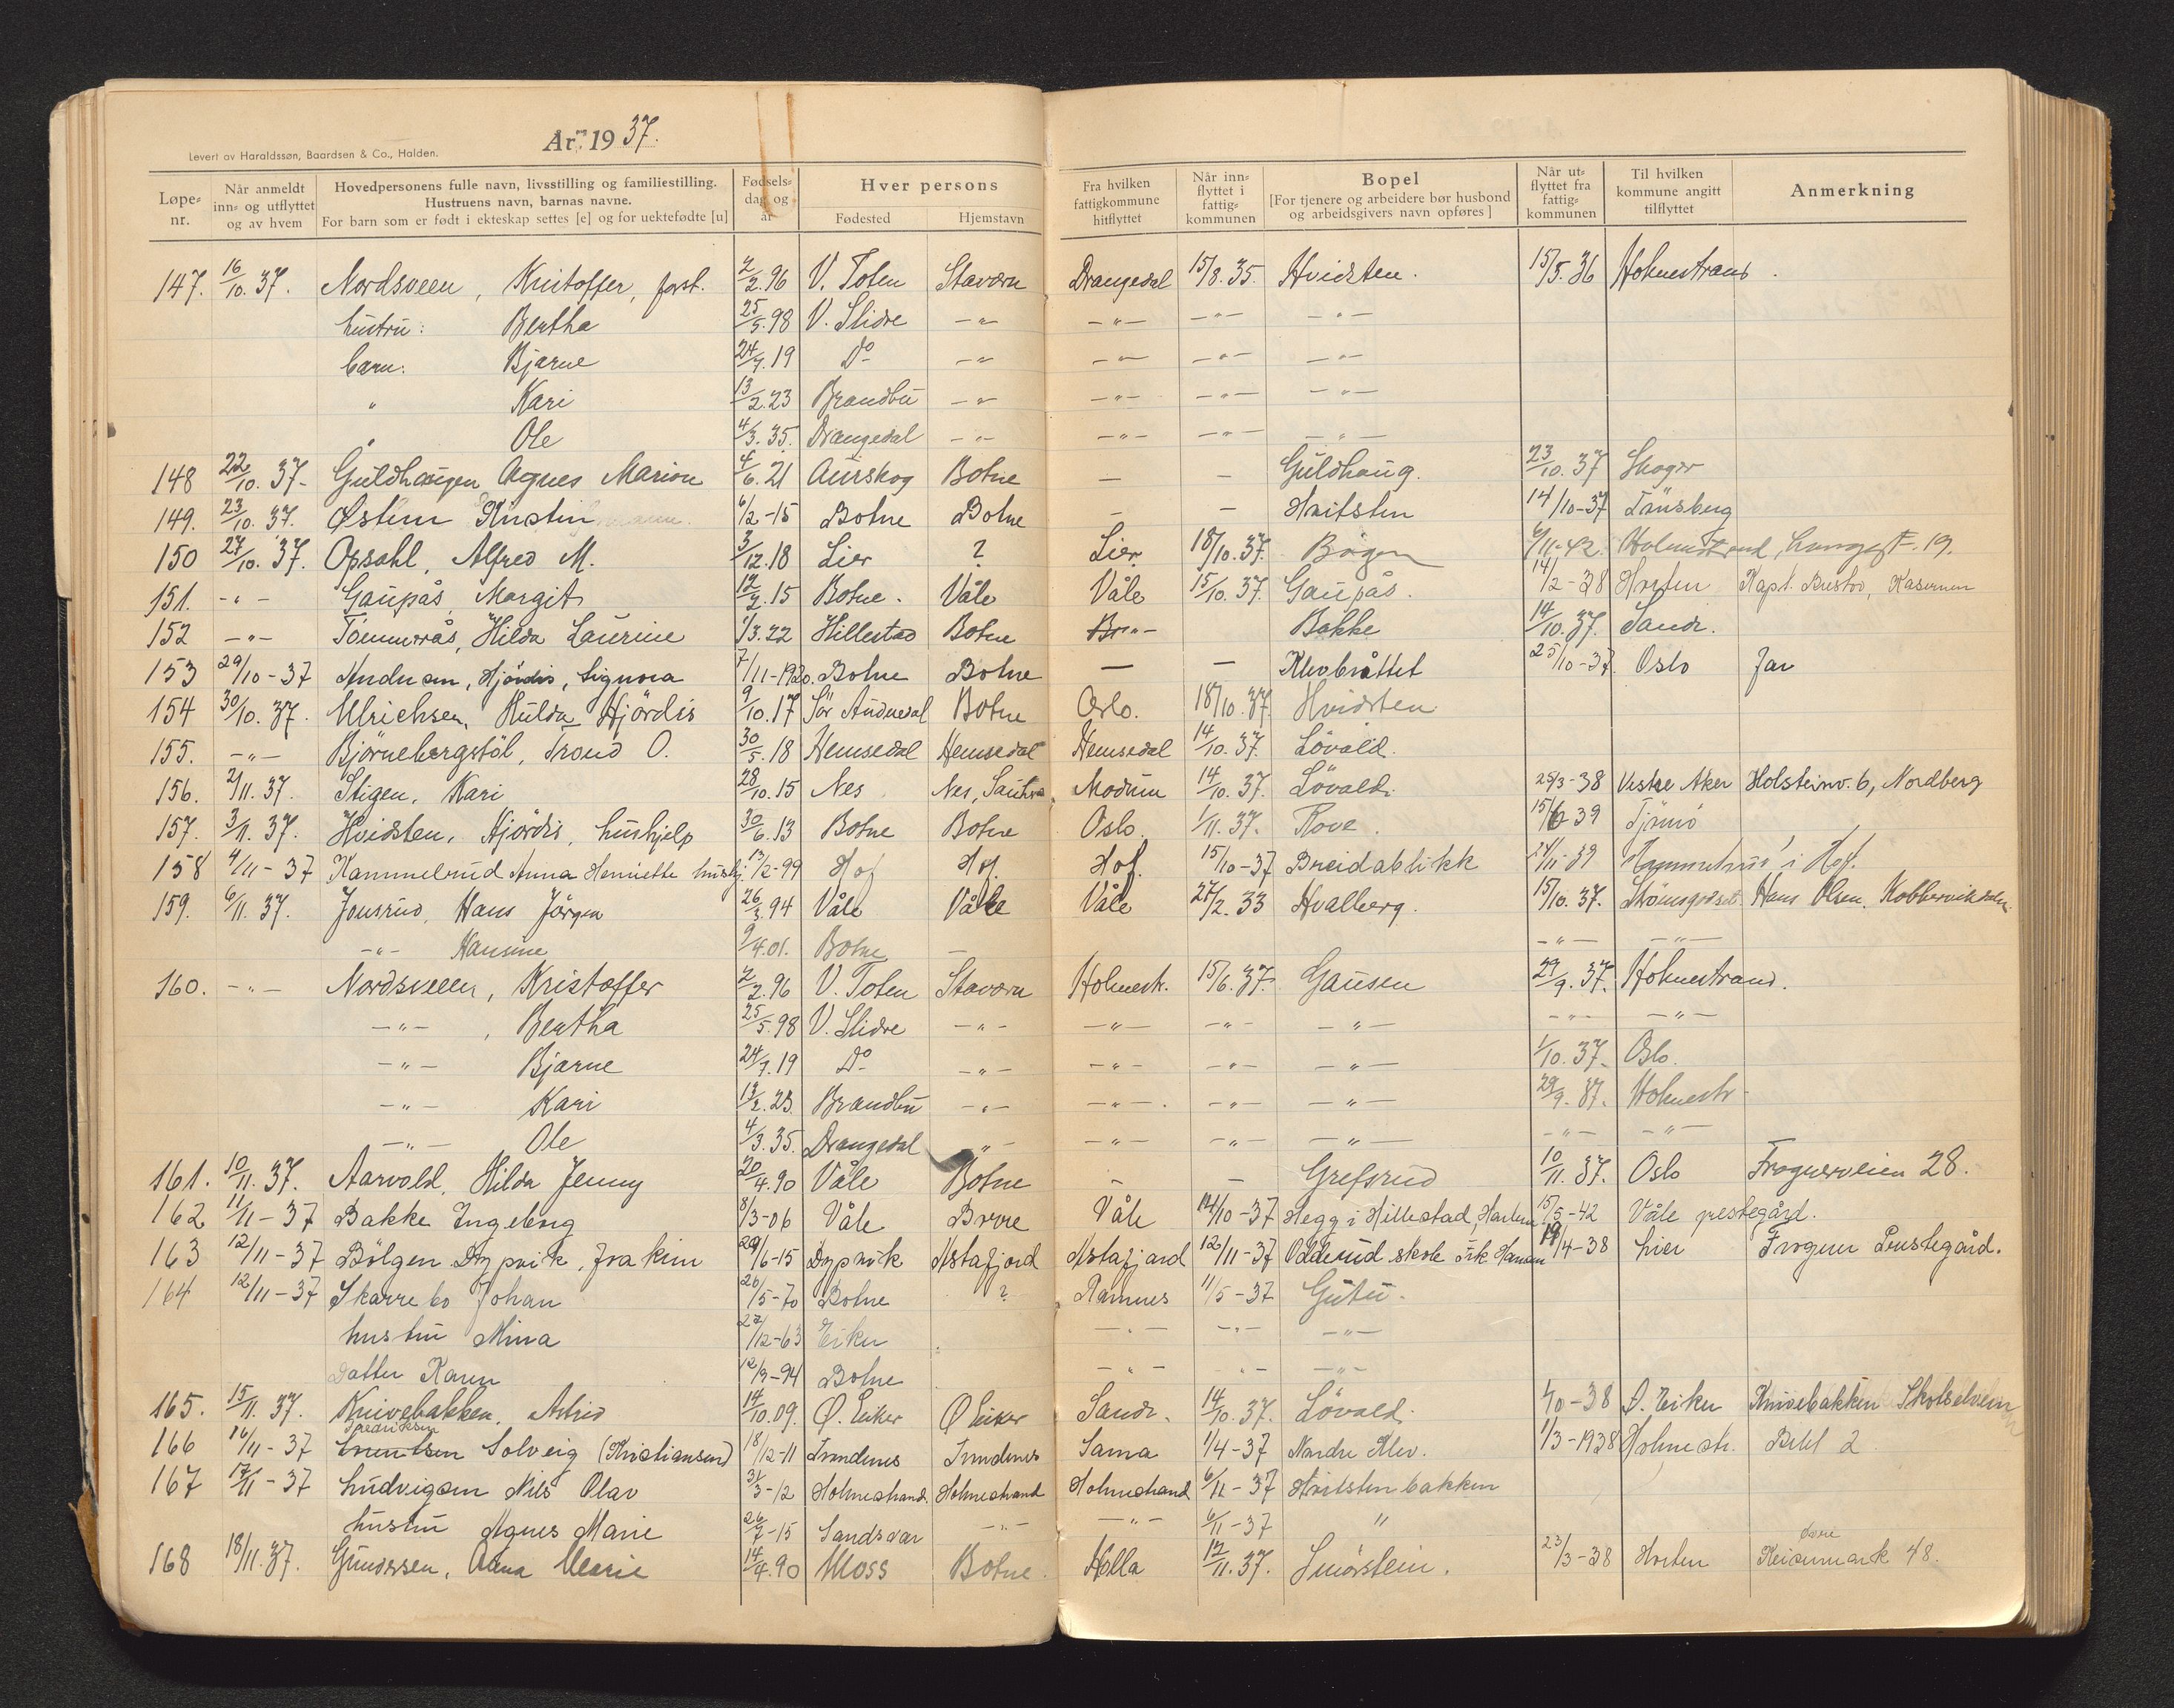 År 1937.
Levert av Haraldssøn, Baardsen & Co., Halden.
Løpe-nr. | Når anmeldt inn- og utflyttet og av hvem | Hovedpersonens fulle navn, livsstilling og familiestilling. Hustruens navn, barnas navne. For barn som er født i ekteskap settes [e] og for uektefødte [u] | Fødsels-dag og år | Hver persons Fødested | Hjemstavn | Fra hvilken fattigkommune hitflyttet | Når inn-flyttet i fattig-kommunen | Bopel [For tjenere og arbeidere bør husbond og arbeidsgivers navn opføres] | Når ut-flyttet fra fattig-kommunen | Til hvilken kommune angitt tilflyttet | Anmerkning
147. 16/10. 37. Nordsveen, Kristoffer, forst. 2/2.96 V. Toten Stavern Drangedal 15/8. 35. Hvidsten. 15/5. 36 Holmestrand.
hustru: Bertha 25/5.98 V. Slidre -"- -"- -"- -"-
barn: Bjarne 24/7.19 Do -"- -"- -"- -"-
" Kari 13/2.23 Brandbu -"- -"- -"- -"-
" Ole 4/3.35. Drangedal -"- -"- -"- -"-
148 22/10. 37- Guldhaugen Agnes Marion 4/6.21 Aurskog Botne — — Guldhaug. 23/10. 37 Skoger
149. 23/10. 37. Østern Kristin 6/2-15 Botne Botne — — Hvitsten 14/10-37 Tønsberg
150 27/10. 37. Opsahl, Alfred M. 3/12.18 Lier ? Lier. 18/10. 37. Bøgen 6/11-42. Holmestrand, Langgt. 19.
151. -"- Gaupås, Margit 12/2.15 Botne. Våle Våle 15/10. 37. Gaupås. 14/2-38 Horten Kapt. Kasernen
152 -"- Tømmerås, Hilda Laurine 1/3.22 Hillestad Botne Bakke 14/10. 37. Sande.
153 29/10-37 Andersen, Hjørdis, Signora 7/11-1920. Botne Botne — — Klevbråttet 25/10-37. Oslo far
154 30/10. 37. Ulrichsen, Hulda Hjördis 9/10.17 Sør Audnedal Botne Oslo. 18/10. 37. Hvidsten
155. -"- Bjørnebergstøl, Trond O. 30/5.18 Hemsedal Hemsedal Hemsedal 14/10. 37. Løvald.
156. 2/11. 37. Stigen, Kari 28/10.15 Nes Nes, Modum 14/10. 37. Løvald. 25/3-38 Vestre Aker Holsteinv. 6, Nordberg
157. 3/11. 37. Hvidsten, Hjördis, hushjelp 30/6.13 Botne Botne Oslo. 1/11. 37. Rove. 15/6 39 Tjømø
158 4/11-37 Kammelrud Anna Henriette hushj. 13/2-99 Hof Hof. Hof. 15/10-37 Breidablikk 24/11-39 i Hof.
159. 6/11. 37. Jonsrud, Hans Jørgen 26/3.94 Våle Våle Våle 27/2. 33 Hvalberg. 15/10. 37. Strømsgodset Hans Olsen, Kobbervikdalen.
-"- Hansine 9/4.01. Botne — -"- -"-
160. -"- Nordsveen, Kristoffer 2/2.96 V. Toten Stavern Holmestr. 15/6. 37. Gausen 29/9. 37. Holmestrand.
-"-, Bertha 25/5.98 V. Slidre -"- -"- -"- -"- -"- -"-
-"- Bjarne 24/7.19 Do -"- -"- -"- -"- 1/10. 37. Oslo.
-"- Kari 13/2.23. Brandbu -"- -"- -"- -"- 29/9. 37. Holmestr.
-"- Ole 4/3.35. Drangedal -"- -"- -"- -"- -"- -"-
161. 10/11. 37. Aarvold, Hilda Jenny 20/4.90 Våle Botne — — Grefsrud 10/11. 37. Oslo Frognerveien 28.
162 11/11-37 Bakke Ingeborg 8/3-06 Våle Borre Våle 14/10-37 Hegg i Hillestad, 15/5-42 Våle prestegård.
163 12/11-37 Bølgen Dyprvik, 29/6-15 Dyprvik Astafjord Astafjord 12/11-37 Odderud skole 19/4-38 Lier Frogner Prestegård.
164 12/11-37 Skarrebo Johan 26/5-70 Botne ? Ramnes 11/5-37 Gutu.
hustru Mina 27/12-63 Eiker -"- -"- -"-
Datter Karen 12/3-94 Botne -"- -"- -"-
165. 15/11. 37. Knivebakken, Astrid 14/10.09. Ø. Eiker Ø Eiker Sande. 14/10. 37. Løvald. 1/10-38 Ø. Eiker Knivebakken Skotselven
Fredriksen
166 16/11-37 Solveig (Kristiansen) 18/12-11 Trondenes Trondenes Sama 1/4-37 Nordre Klev. 1/3-1938 Holmestr. 2
167 17/11-37 Ludvigsen Nils Olav 31/3-12 Holmestrand. Holmestrand Holmestrand 6/11-37 Hvitstenbakken
hustru Agnes Marie 26/7-15 Sandsvær -"- -"- 6/11-37 "
168 18/11. 37. Gundersen, Anna Marie 14/4.90 Moss Botne. Holla 12/11. 37. Smørstein. 23/3-38 Horten Øvre Keisemark 48.